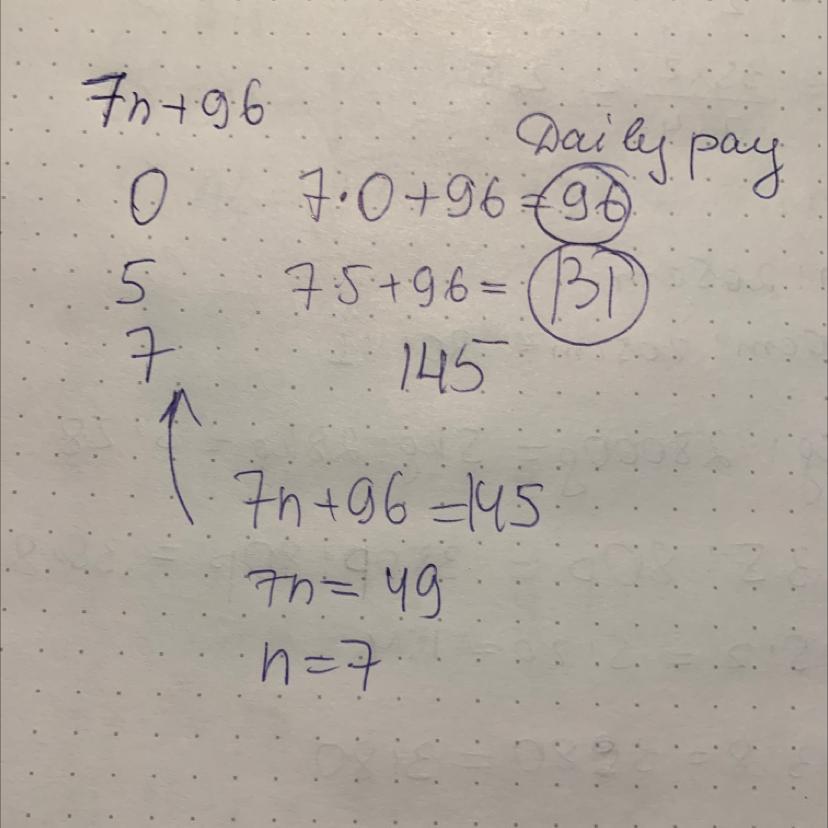 7n+96
Daily pay
0 7·0+96=96
5 7 5+96= 131
7 145
7n+96=145
7n=49
n=7